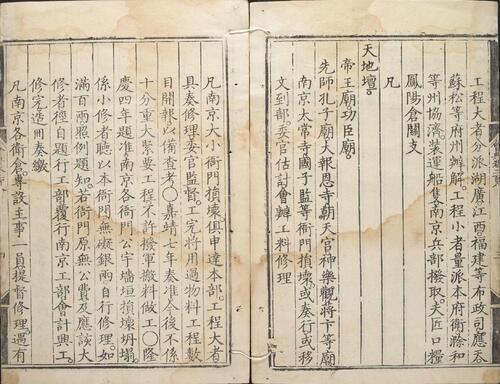 工程大者分派湖廣江西福建等布政司應天
蘇松等府州辦解。工程小者量派本府衙滁和
等州協濟裝運船隻南京兵部撥取。夫匠口糧
鳳陽倉關支
凡
天地壇。
帝王廟。功臣廟。
先師孔子廟。大報恩寺。朝天宮。神樂觀。將卞等廟
南京太常寺。國子監等衙門損壞。或奏行或移
文到部。委官估計會辦工料修理
凡南京大小衙門損壞俱申達本部。工程大者
具奏修理委官監督。工完將用過物料工程數
目開報以備查考○嘉靖七年奏准今後不係
十分重大緊要工程不許撥軍搬料做工○隆
慶四年題准南京各衙門公宇墻垣損壞坍塌
係小修者聽以本衙門無礙銀兩自行修理。如
滿百兩照例題知。若衙門原無公費及應該大
修者徑自題行工部覆行南京工部會計興工。
修完造冊奏繳
凡南京各衛倉。專設主事一員提督修理。遇有